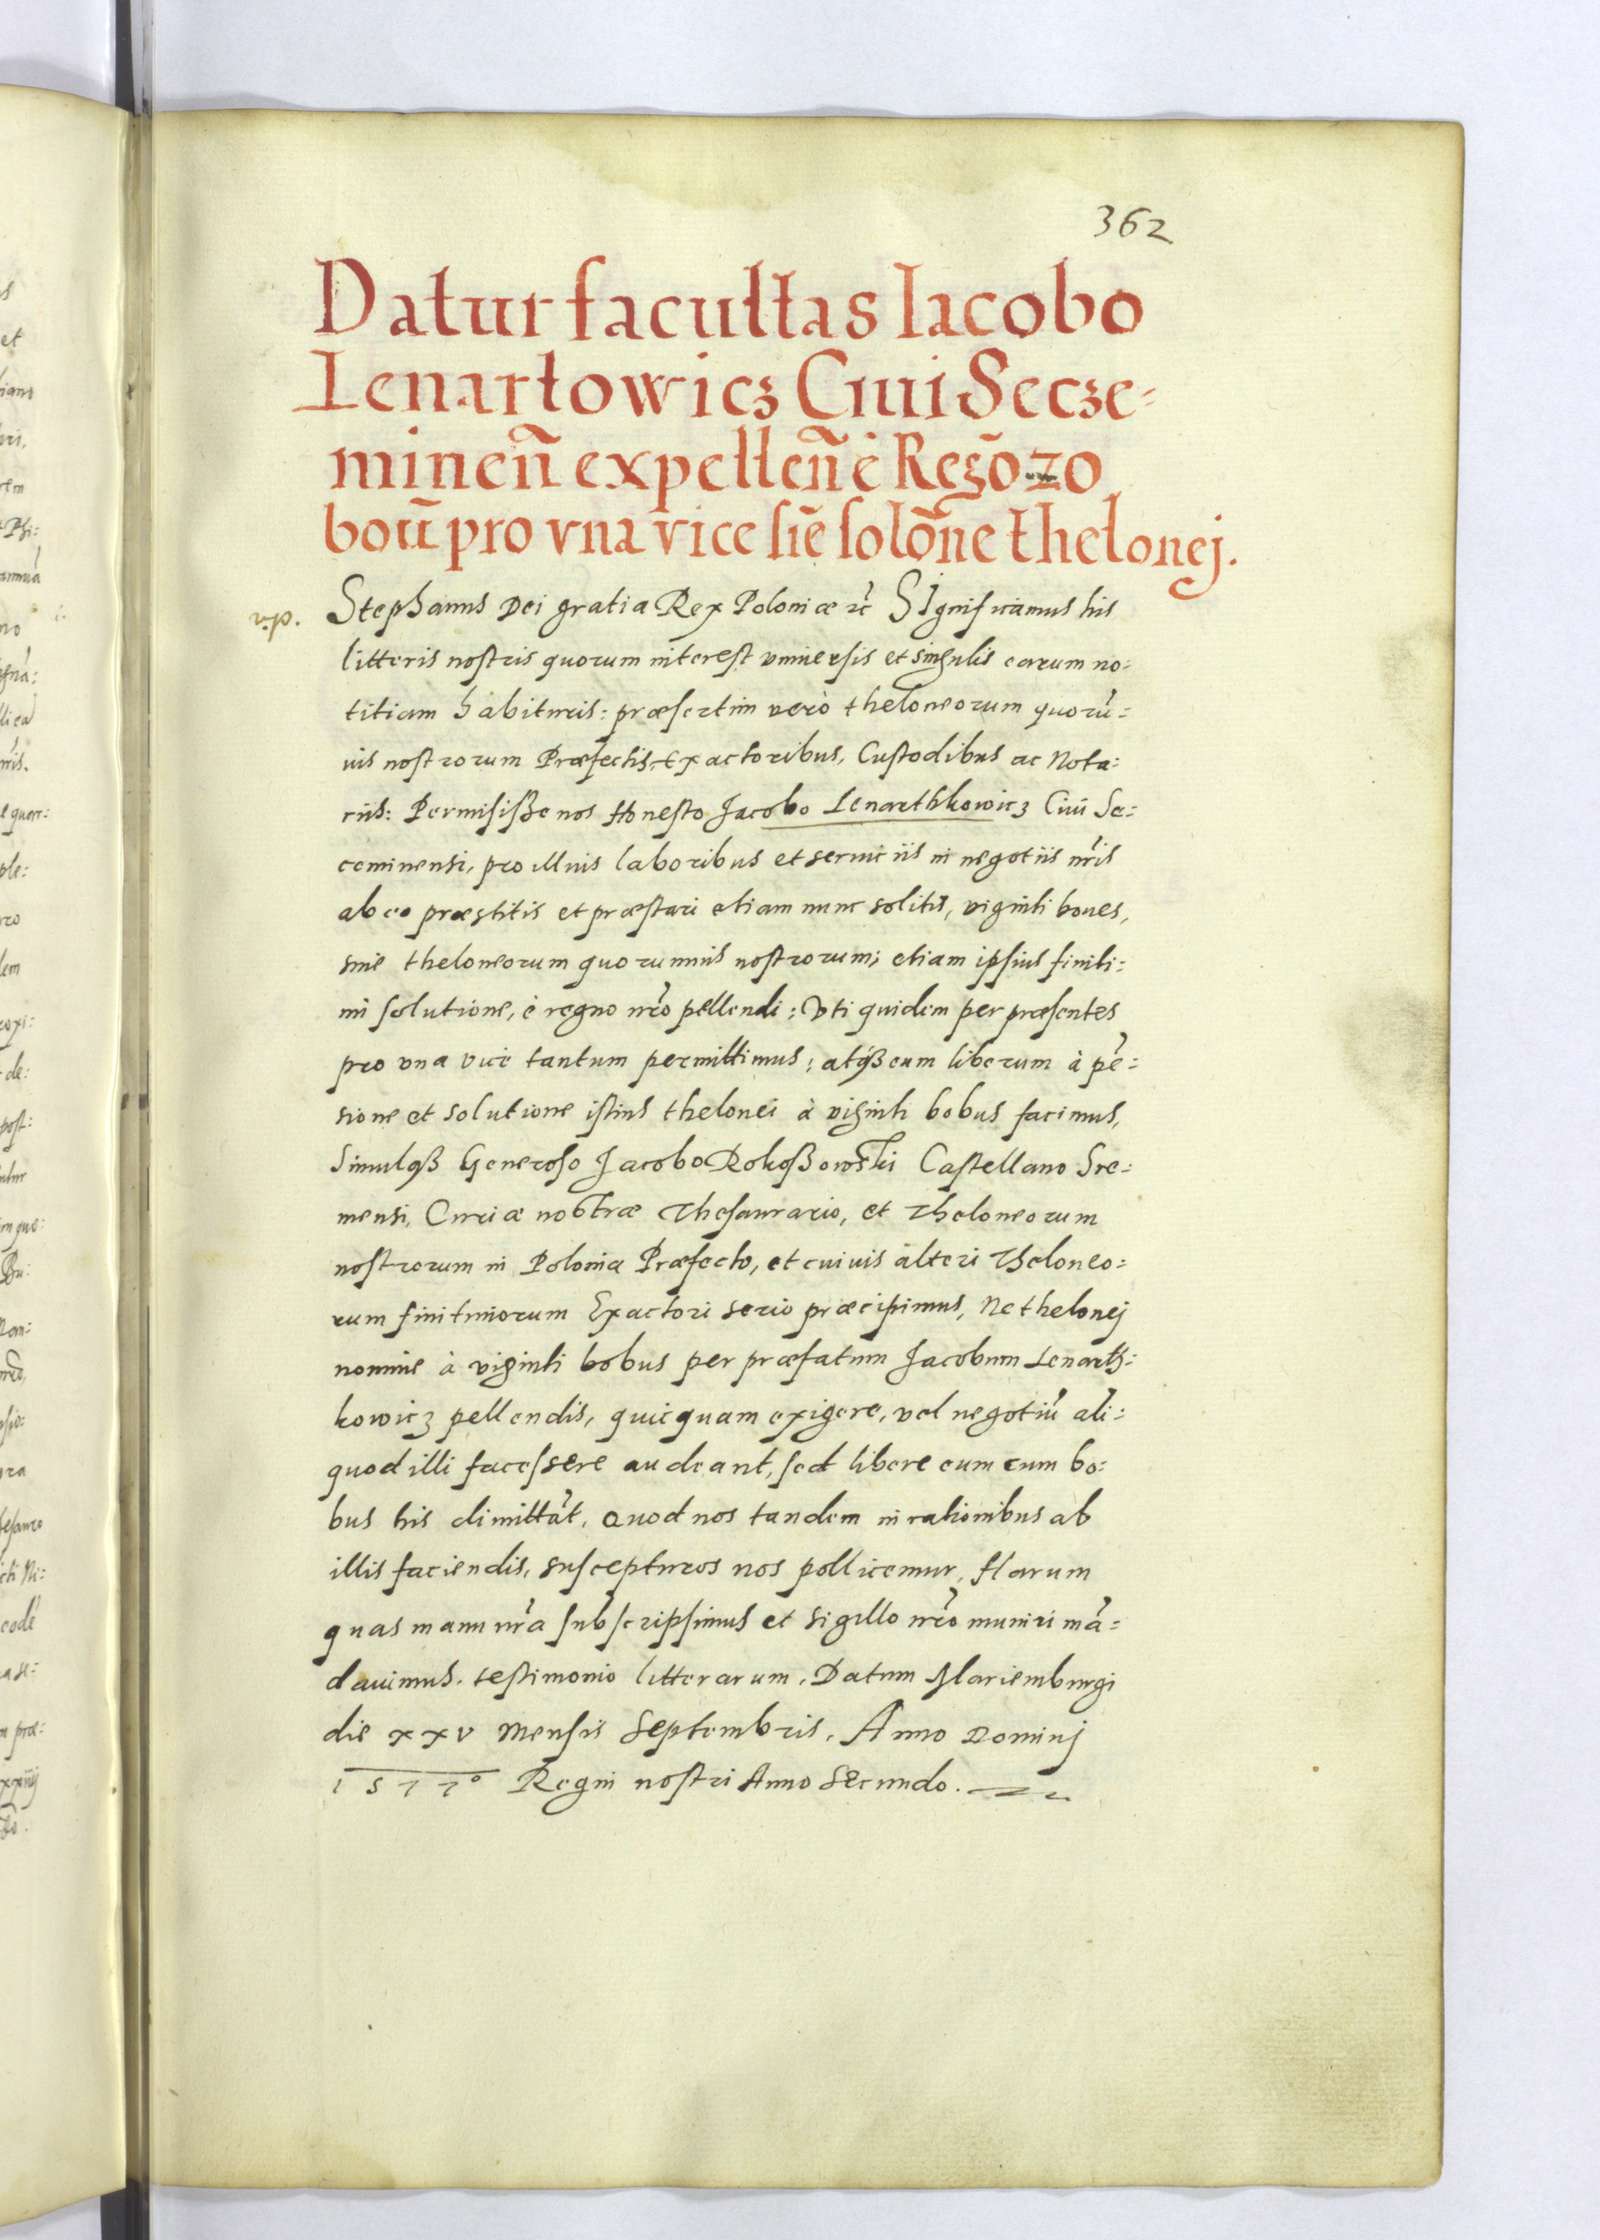 362
Datur facultas Iacobo
Lenartowicz Ciui Secze-
mineñ expelleñ è Regõ 20
boũ pro vna vice siẽ solõne thelonej.
Stephanus Dei gratia Rex Poloniæ &c̃ SIgnificamus his
litteris nostris quorum interest vniuersis et singulis earum no:
titiam habituris: præsertim verò theloneorum quorũ:
uis nostrorum Præfectis, Exactoribus, Custodibus ac Nota:
riis: Permisiße nos Honesto Jacobo Lenarthkowicz Ciui Se:
ceminensi, pro illius laboribus et seruiciis in negotiis nr̃is
ab eo præstitis et præstari etiam nunc solitis, viginti boues,
sine theloneorum quorumuis nostrorum; etiam ipsius finiti:
mi solutione, è regno nr̃o pellendi: Vti quidem per præsentes
pro vna vice tantum permittimus; atqß eum liberum à pẽ:
sione et solutione istius thelonei à viginti bobus facimus,
Simulqß Generoso Jacobo Rokoßowski Castellano Sre:
mensi, Curiæ nostræ Thesaurario, et Theloneorum
nostrorum in Polonia Præfecto, et cuiuis alteri Theloneo:
rum finitimorum Exactori serio præcipimus, Ne thelonej
nomine à viginti bobus per præfatum Jacobum Lenarth:
kowicz pellendis, quicquam exigere, vel negotiũ ali:
quod illi facessere audeant, sed libere eum cum bo:
bus his dimittãt. Quod nos tandem in rationibus ab
illis faciendis, suscepturos nos pollicemur. Harum
quas manu nr̃a subscripsimus et sigillo nr̃o muniri mã:
dauimus. testimonio litterarum. Datum Mariemburgi
die xxv Mensis Septembris. Anno Dominj
1577º Regni nostri Anno Secundo.